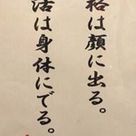 格は顔に出る。
活は身体にでる。